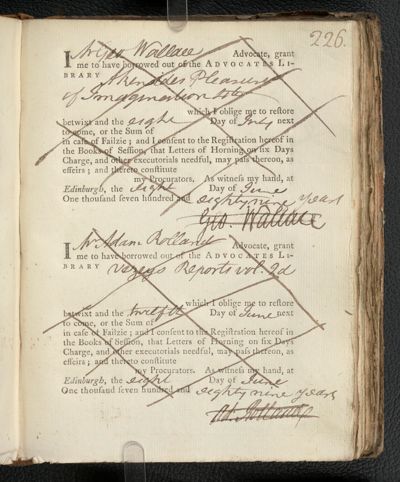 226.
I Mr Geo Wallace Advocate, grant
me to have borrowed out of the ADVOCATES LI-
BRARY Akensides Pleasures
of Imagination
which I oblige me to restore
betwixt and the eight Day of July next
to come, or the Sum of
in case of Failzie; and I consent to the Registration hereof in
the Books of Session, that Letters of Horning on six Days
Charge, and other executorials needful, may pass thereon, as
effeirs; and thereto constitute
my Procurators. As witness my hand, at
Edinburgh, the eight Day of June
One thousand seven hundred and eighty nine years
Geo. Wallace
I Mr Adam Rolland Advocate, grant
me to have borrowed out of the ADVOCATES LI-
BRARY Vezeys Reports vol. 2d
which I oblige me to restore
betwixt and the twelfth Day of June next
to come, or the Sum of
in case of Failzie; and I consent to the Registration hereof in
the Books of Session, that Letters of Horning on six Days
Charge, and other executorials needful, may pass thereon, as
effeirs; and thereto constitute
my Procurators. As witness my hand, at
Edinburgh, the eight Day of June
One thousand seven hundred and eighty nine years
Ad. Rolland